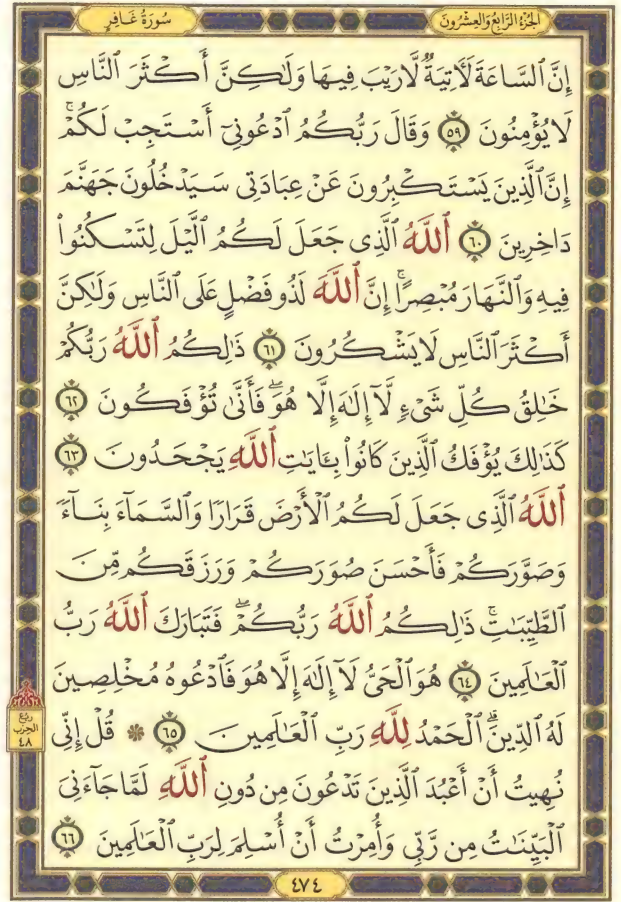 الجزء الرابع والعشرون
سورة غافر
إِنَّ ٱلسَّاعَةَ لَءَاتِيَةٌ لَّا رَيْبَ فِيهَا وَلَٰكِنَّ أَكْثَرَ ٱلنَّاسِ
لَا يُؤْمِنُونَ ٥٩ وَقَالَ رَبُّكُمُ ٱدْعُونِىٓ أَسْتَجِبْ لَكُمْ ۚ
إِنَّ ٱلَّذِينَ يَسْتَكْبِرُونَ عَنْ عِبَادَتِى سَيَدْخُلُونَ جَهَنَّمَ
دَاخِرِينَ ٦٠ ٱللَّهُ ٱلَّذِى جَعَلَ لَكُمُ ٱلَّيْلَ لِتَسْكُنُوا۟
فِيهِ وَٱلنَّهَارَ مُبْصِرًا ۚ إِنَّ ٱللَّهَ لَذُو فَضْلٍ عَلَى ٱلنَّاسِ وَلَٰكِنَّ
أَكْثَرَ ٱلنَّاسِ لَا يَشْكُرُونَ ٦١ ذَٰلِكُمُ ٱللَّهُ رَبُّكُمْ
خَٰلِقُ كُلِّ شَىْءٍ لَّآ إِلَٰهَ إِلَّا هُوَ ۖ فَأَنَّىٰ تُؤْفَكُونَ ٦٢
كَذَٰلِكَ يُؤْفَكُ ٱلَّذِينَ كَانُوا۟ بِـَٔايَٰتِ ٱللَّهِ يَجْحَدُونَ ٦٣
ٱللَّهُ ٱلَّذِى جَعَلَ لَكُمُ ٱلْأَرْضَ قَرَارًا وَٱلسَّمَآءَ بِنَآءً
وَصَوَّرَكُمْ فَأَحْسَنَ صُوَرَكُمْ وَرَزَقَكُم مِّنَ
ٱلطَّيِّبَٰتِ ۚ ذَٰلِكُمُ ٱللَّهُ رَبُّكُمْ ۖ فَتَبَارَكَ ٱللَّهُ رَبُّ
ٱلْعَٰلَمِينَ ٦٤ هُوَ ٱلْحَىُّ لَآ إِلَٰهَ إِلَّا هُوَ فَٱدْعُوهُ مُخْلِصِينَ
لَهُ ٱلدِّينَ ۗ ٱلْحَمْدُ لِلَّهِ رَبِّ ٱلْعَٰلَمِينَ ٦٥ ۞ قُلْ إِنِّى
نُهِيتُ أَنْ أَعْبُدَ ٱلَّذِينَ تَدْعُونَ مِن دُونِ ٱللَّهِ لَمَّا جَآءَنِىَ
ٱلْبَيِّنَٰتُ مِن رَّبِّى وَأُمِرْتُ أَنْ أُسْلِمَ لِرَبِّ ٱلْعَٰلَمِينَ ٦٦
ربع
الحزب
٤٨
٤٧٤